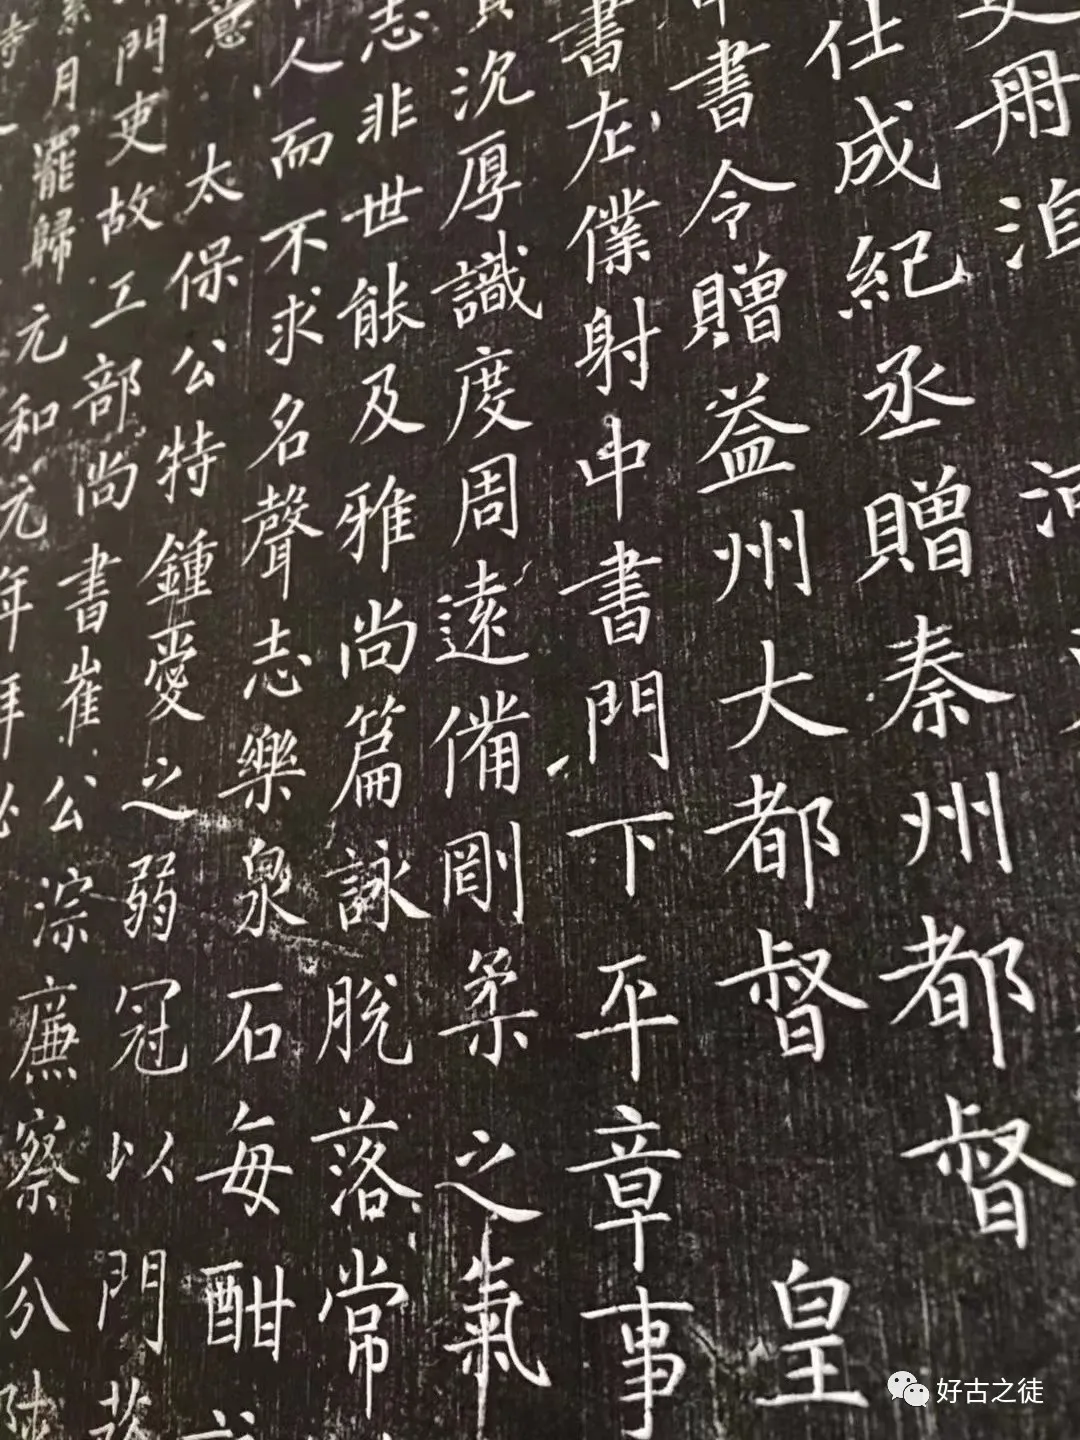 洎
仕成紀丞贈秦州都督
書令贈益州大都督皇
書左僕射中書門下平章事
沉厚識度周遠備剛柔之氣
志非世能及雅尚篇詠脫落常
人而不求名聲志樂泉石每酣
太保公特鍾愛之弱冠以門
門吏故工部尚書崔公淙廉察分陝
月罷歸元和元年拜
好古之徒